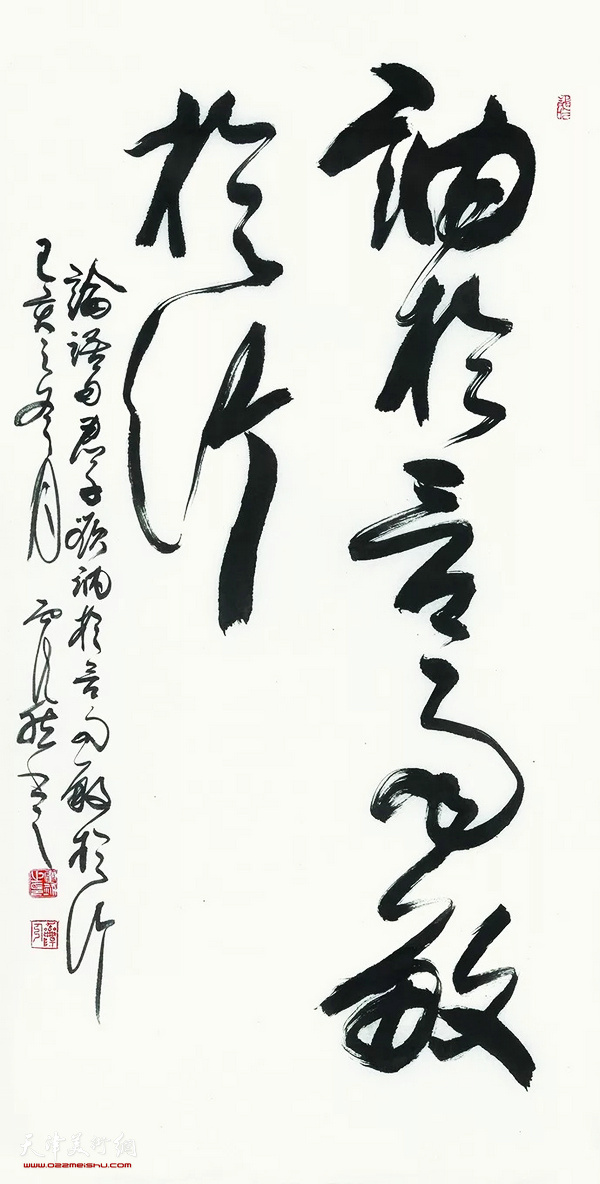 訥於言而敏
於行
論語句君子欲訥於言而敏於行
己亥之冬月
天津美术网
www.022meishu.com